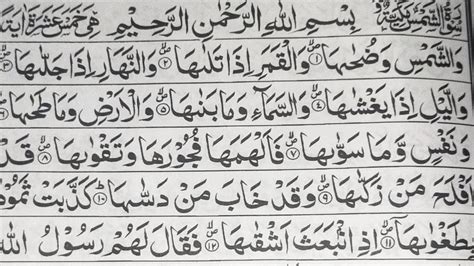 سورة الشمس مكية بسم الله الرحمن الرحيم هي خمس عشرة آية
والشمس وضحىها ۝۱ والقمر اذا تلىها ۝۲ والنهار اذا جلىها ۝۳
واليل اذا يغشىها ۝۴ والسماء وما بنىها ۝۵ والارض وما طحىها ۝۶
ونفس وما سوىها ۝۷ فالهمها فجورها وتقوىها ۝۸ قد
افلح من زكىها ۝۹ وقد خاب من دسىها ۝۱۰ كذبت ثمود
بطغوىها ۝۱۱ اذ انبعث اشقىها ۝۱۲ فقال لهم رسول الله